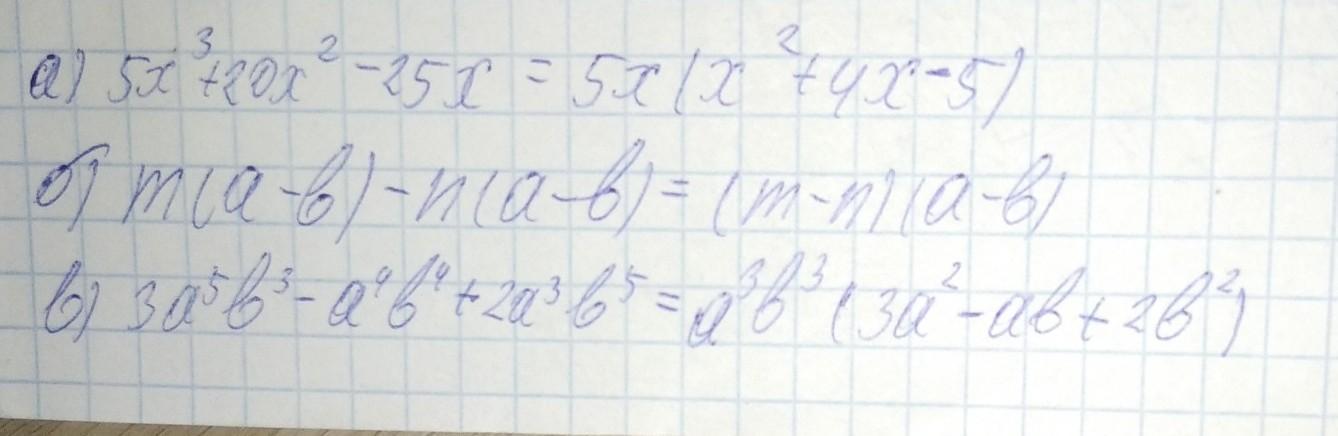 а) 5x³+20x²-25x = 5x(x²+4x-5)
б) m(a-b)-n(a-b)=(m-n)(a-b)
в) 3a⁵b³-a⁴b⁴+2a³b⁵=a³b³(3a²-ab+2b²)